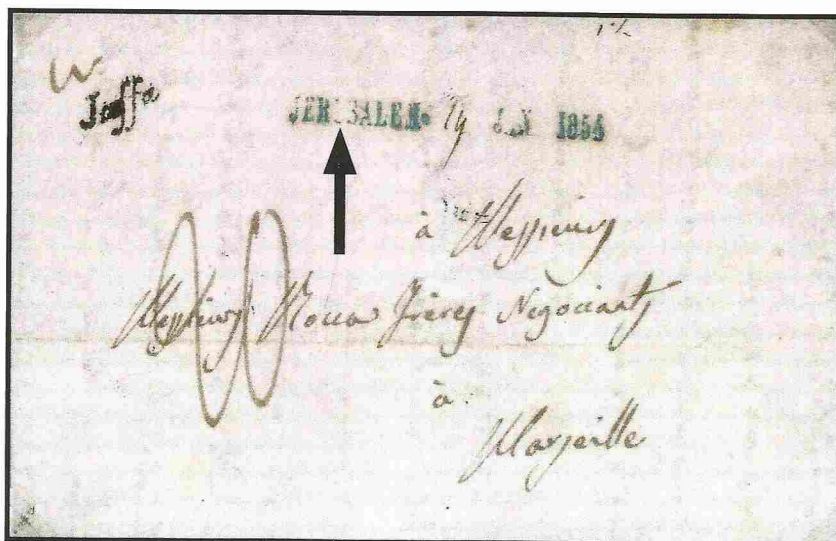 Jaffa
JERUSALEM. 19 JAN 1854
à Messieurs
Messieurs Frères Negociants
à
Marseille